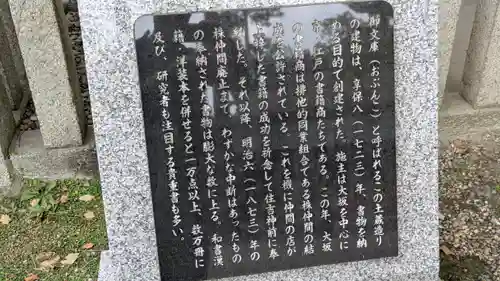 御文庫(おぶんこ)と呼ばれるこの土蔵造り
の建物は、享保八(一七二三)年、書物を納
める目的で創建された。施主は大坂を中心に
、江戸の書籍商たちである。この年、大坂
の書籍商は排他的同業組合である株仲間の結
成を公許されている。これを機に仲間の店が
した書籍の成功を祈念して住吉神前に奉
納した。それ以降、明治六(一八七三)年の
株仲間廃止まで、わずかな中断はあったもの
の奉納された書物は膨大な数に上る。和書漢
籍・洋装本を併せると一万点以上、数万冊に
及び、研究者も注目する貴重書も多い。